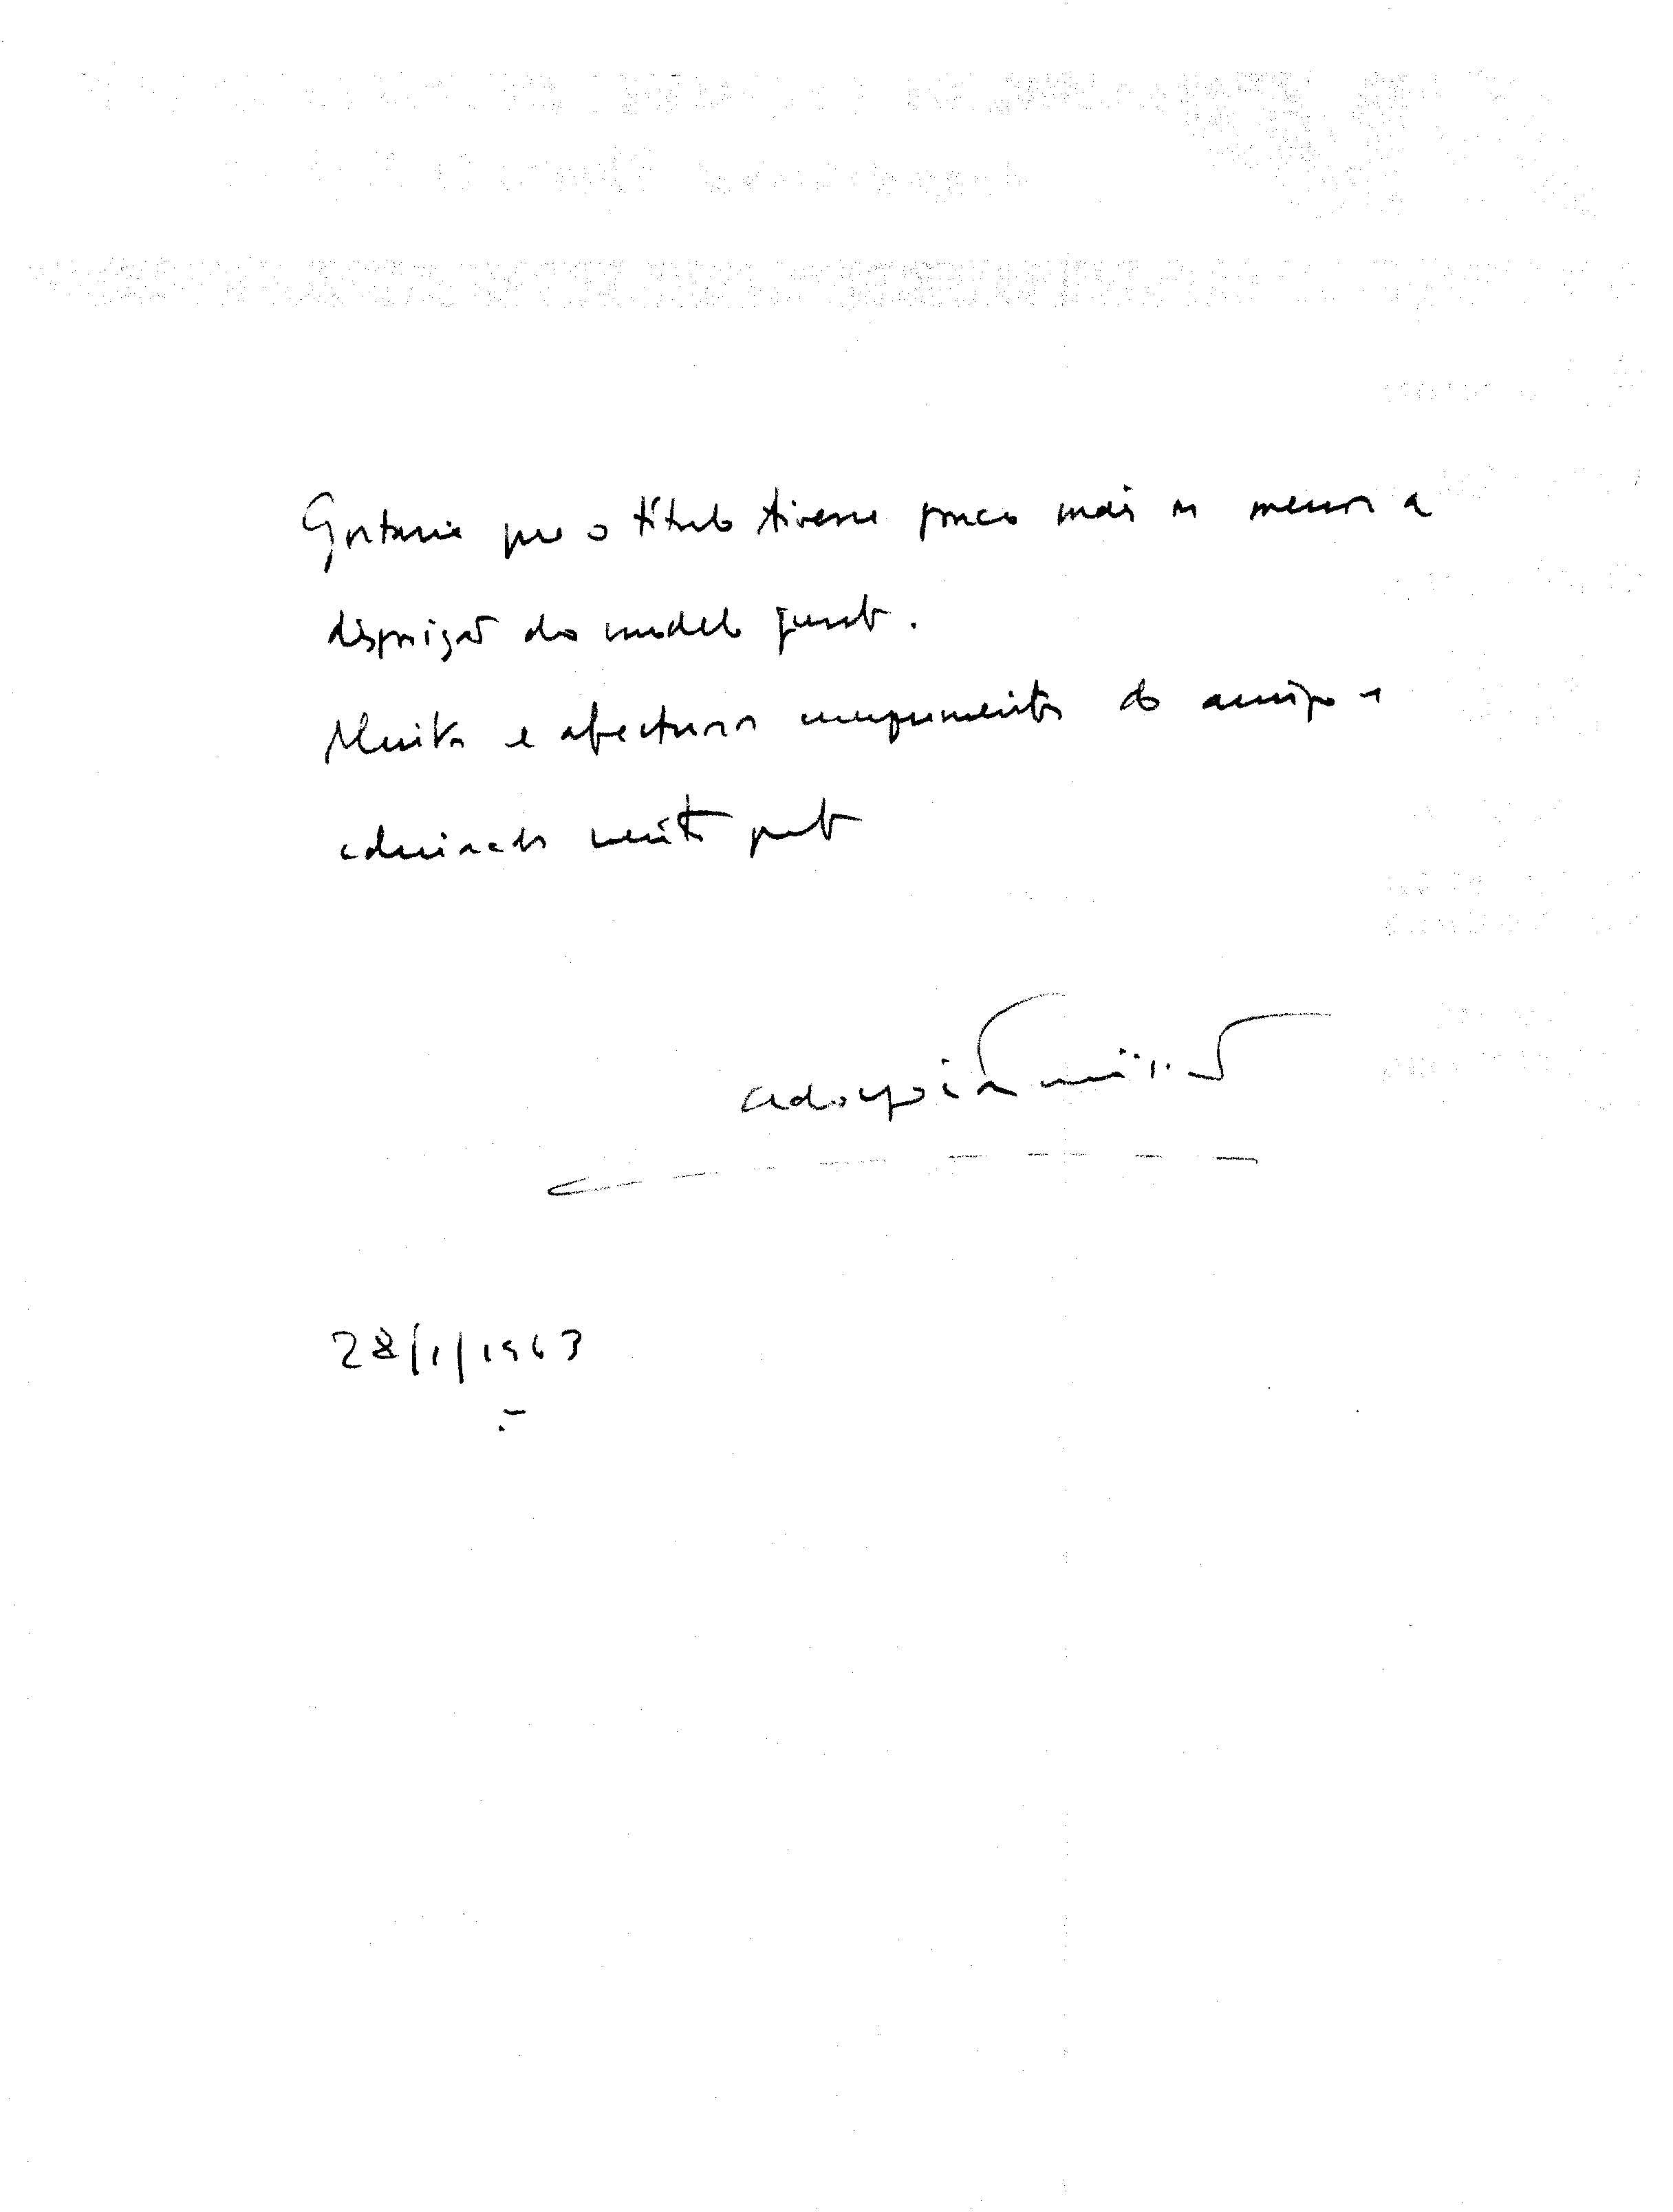 Gostaria que o título tivesse pouco mais ou menos a
disposição do modelo junto.
Muitos e afectuosos cumprimentos do amigo e
admirador muito grato
28/1/1963